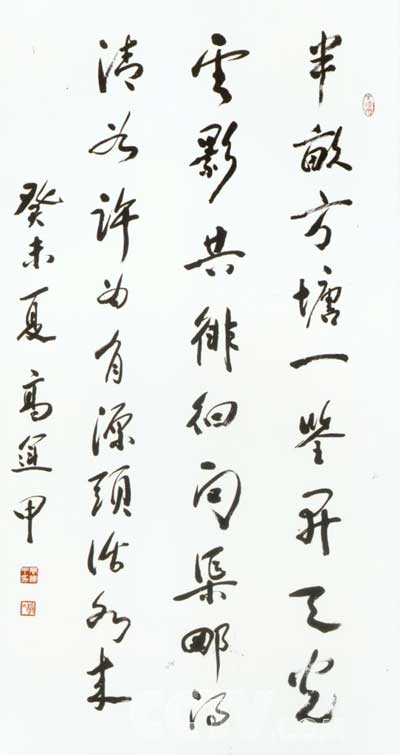 半畝方塘一鑒開天光
雲影共徘徊問渠那得
清如許為有源頭活水來
癸未夏高運甲
CCTV.com